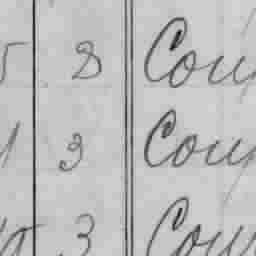 5 8 Cou
1 3 Cou
3 Cou